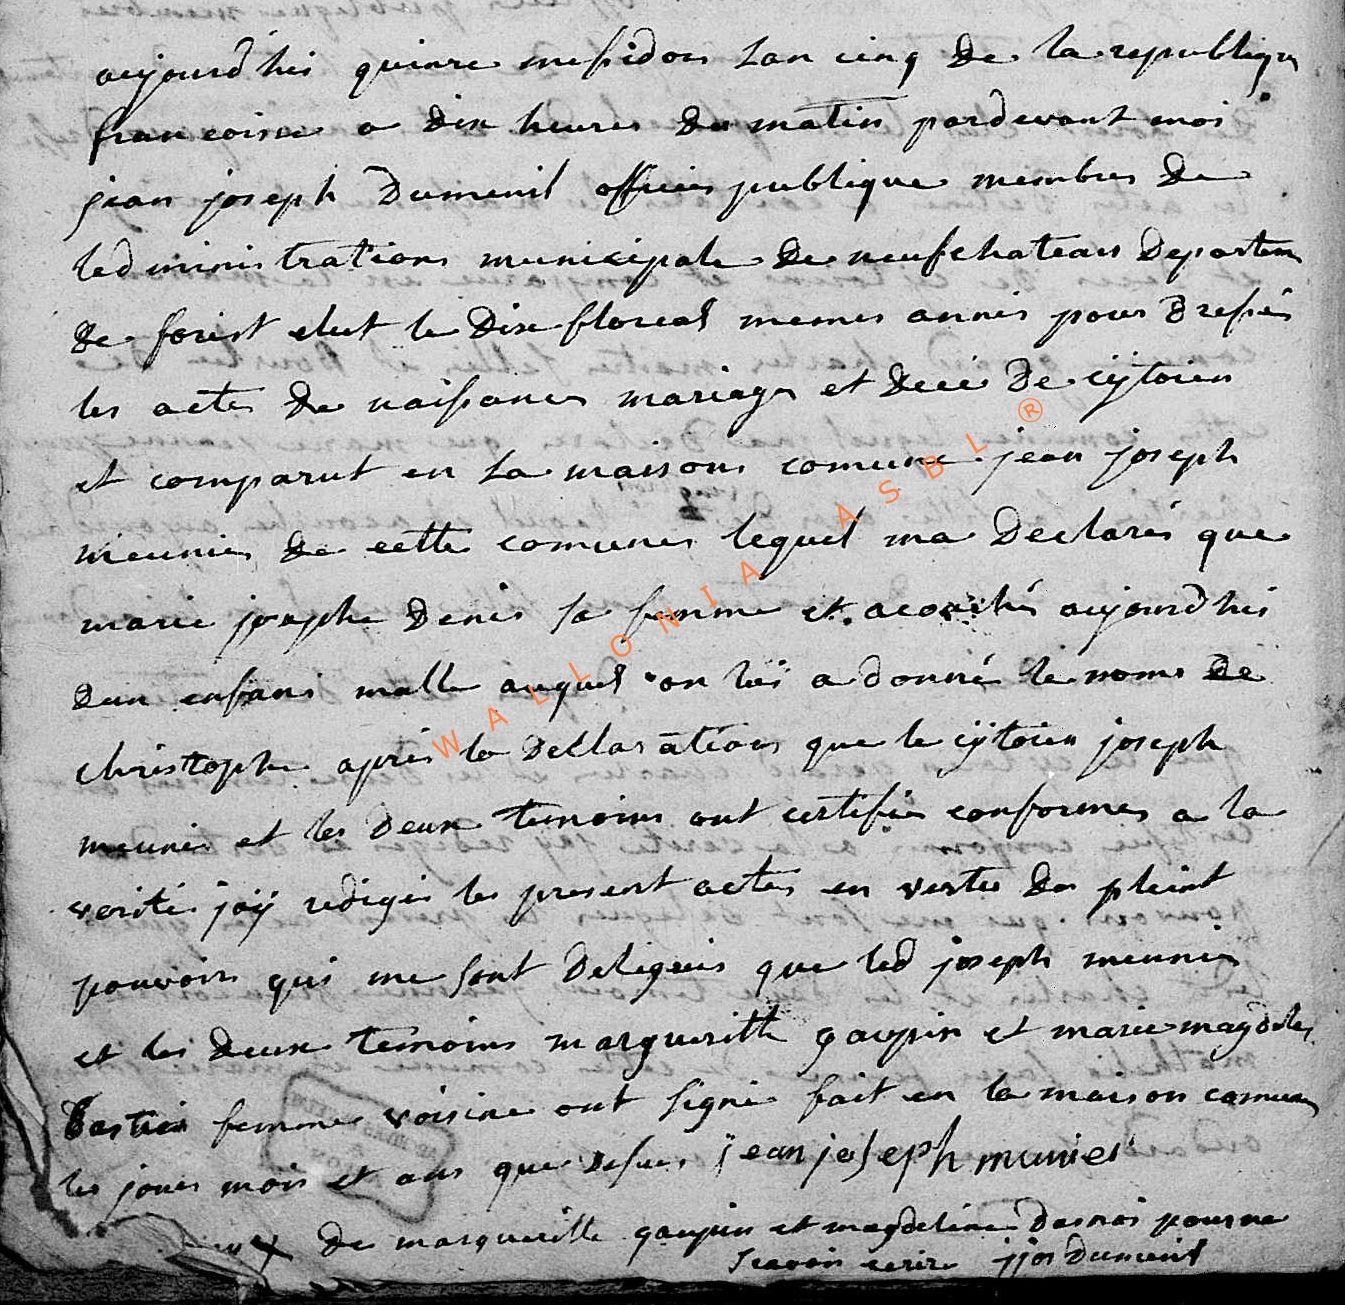 aujourd'hui quinze mesidor lan cinq de la republique
francoisse a dix heures du matin pardevant moi
jean joseph Dumenil officier publique membre de
ledministrations municipale de neufchateau Departem
de forest elut le Dix floreal memes annés pour Dresser
les actes de naissances mariage et decé de cÿtoien
et comparut en la maisons comune jean joseph
meunier de cette comunes lequel ma declarés que
marie josephe Denis sa femme et acouchés aujourdhui
dun enfans malle auquel on lui a donné le noms de
christophe après la Declarations que le cÿtoien joseph
meunier et les deux temoins ont certifiés conformes a la
verités jaÿ redigés les present actes en vertu du pleint
pouvoirs qui me sont delegués que led joseph meunier
et les deux temoins margueritte gaupin et marie magdelei
Bastien femmes voisine ont signé fait en la maison comune
les jours mois et ans que desus jean joseph munier
X de margueritte gaupin et magdeleine pour ne
scavoir ecrire jjos Dumenil
WALLONIA ASBL ®